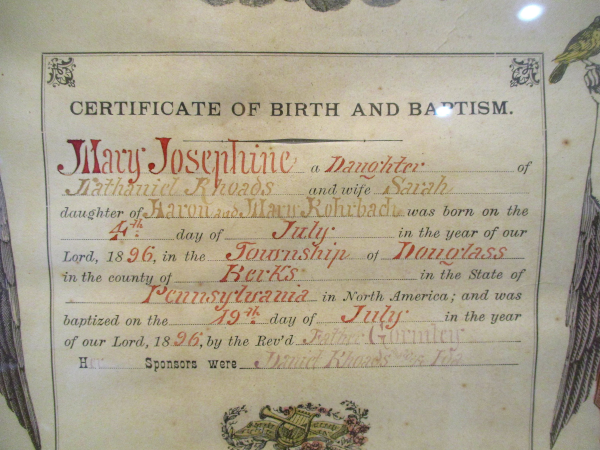 CERTIFICATE OF BIRTH AND BAPTISM.
Mary Josephine a Daughter of
Nathaniel Rhoads and wife Sarah
daughter of Aaron and Mary Rohrbach was born on the
4th day of July in the year of our
Lord, 1896, in the Township of Douglass
in the county of Berks in the State of
Pennsylvania in North America; and was
baptized on the 19th day of July in the year
of our Lord, 1896, by the Rev'd Father Gormley
Her Sponsors were Daniel Rhoads Ida